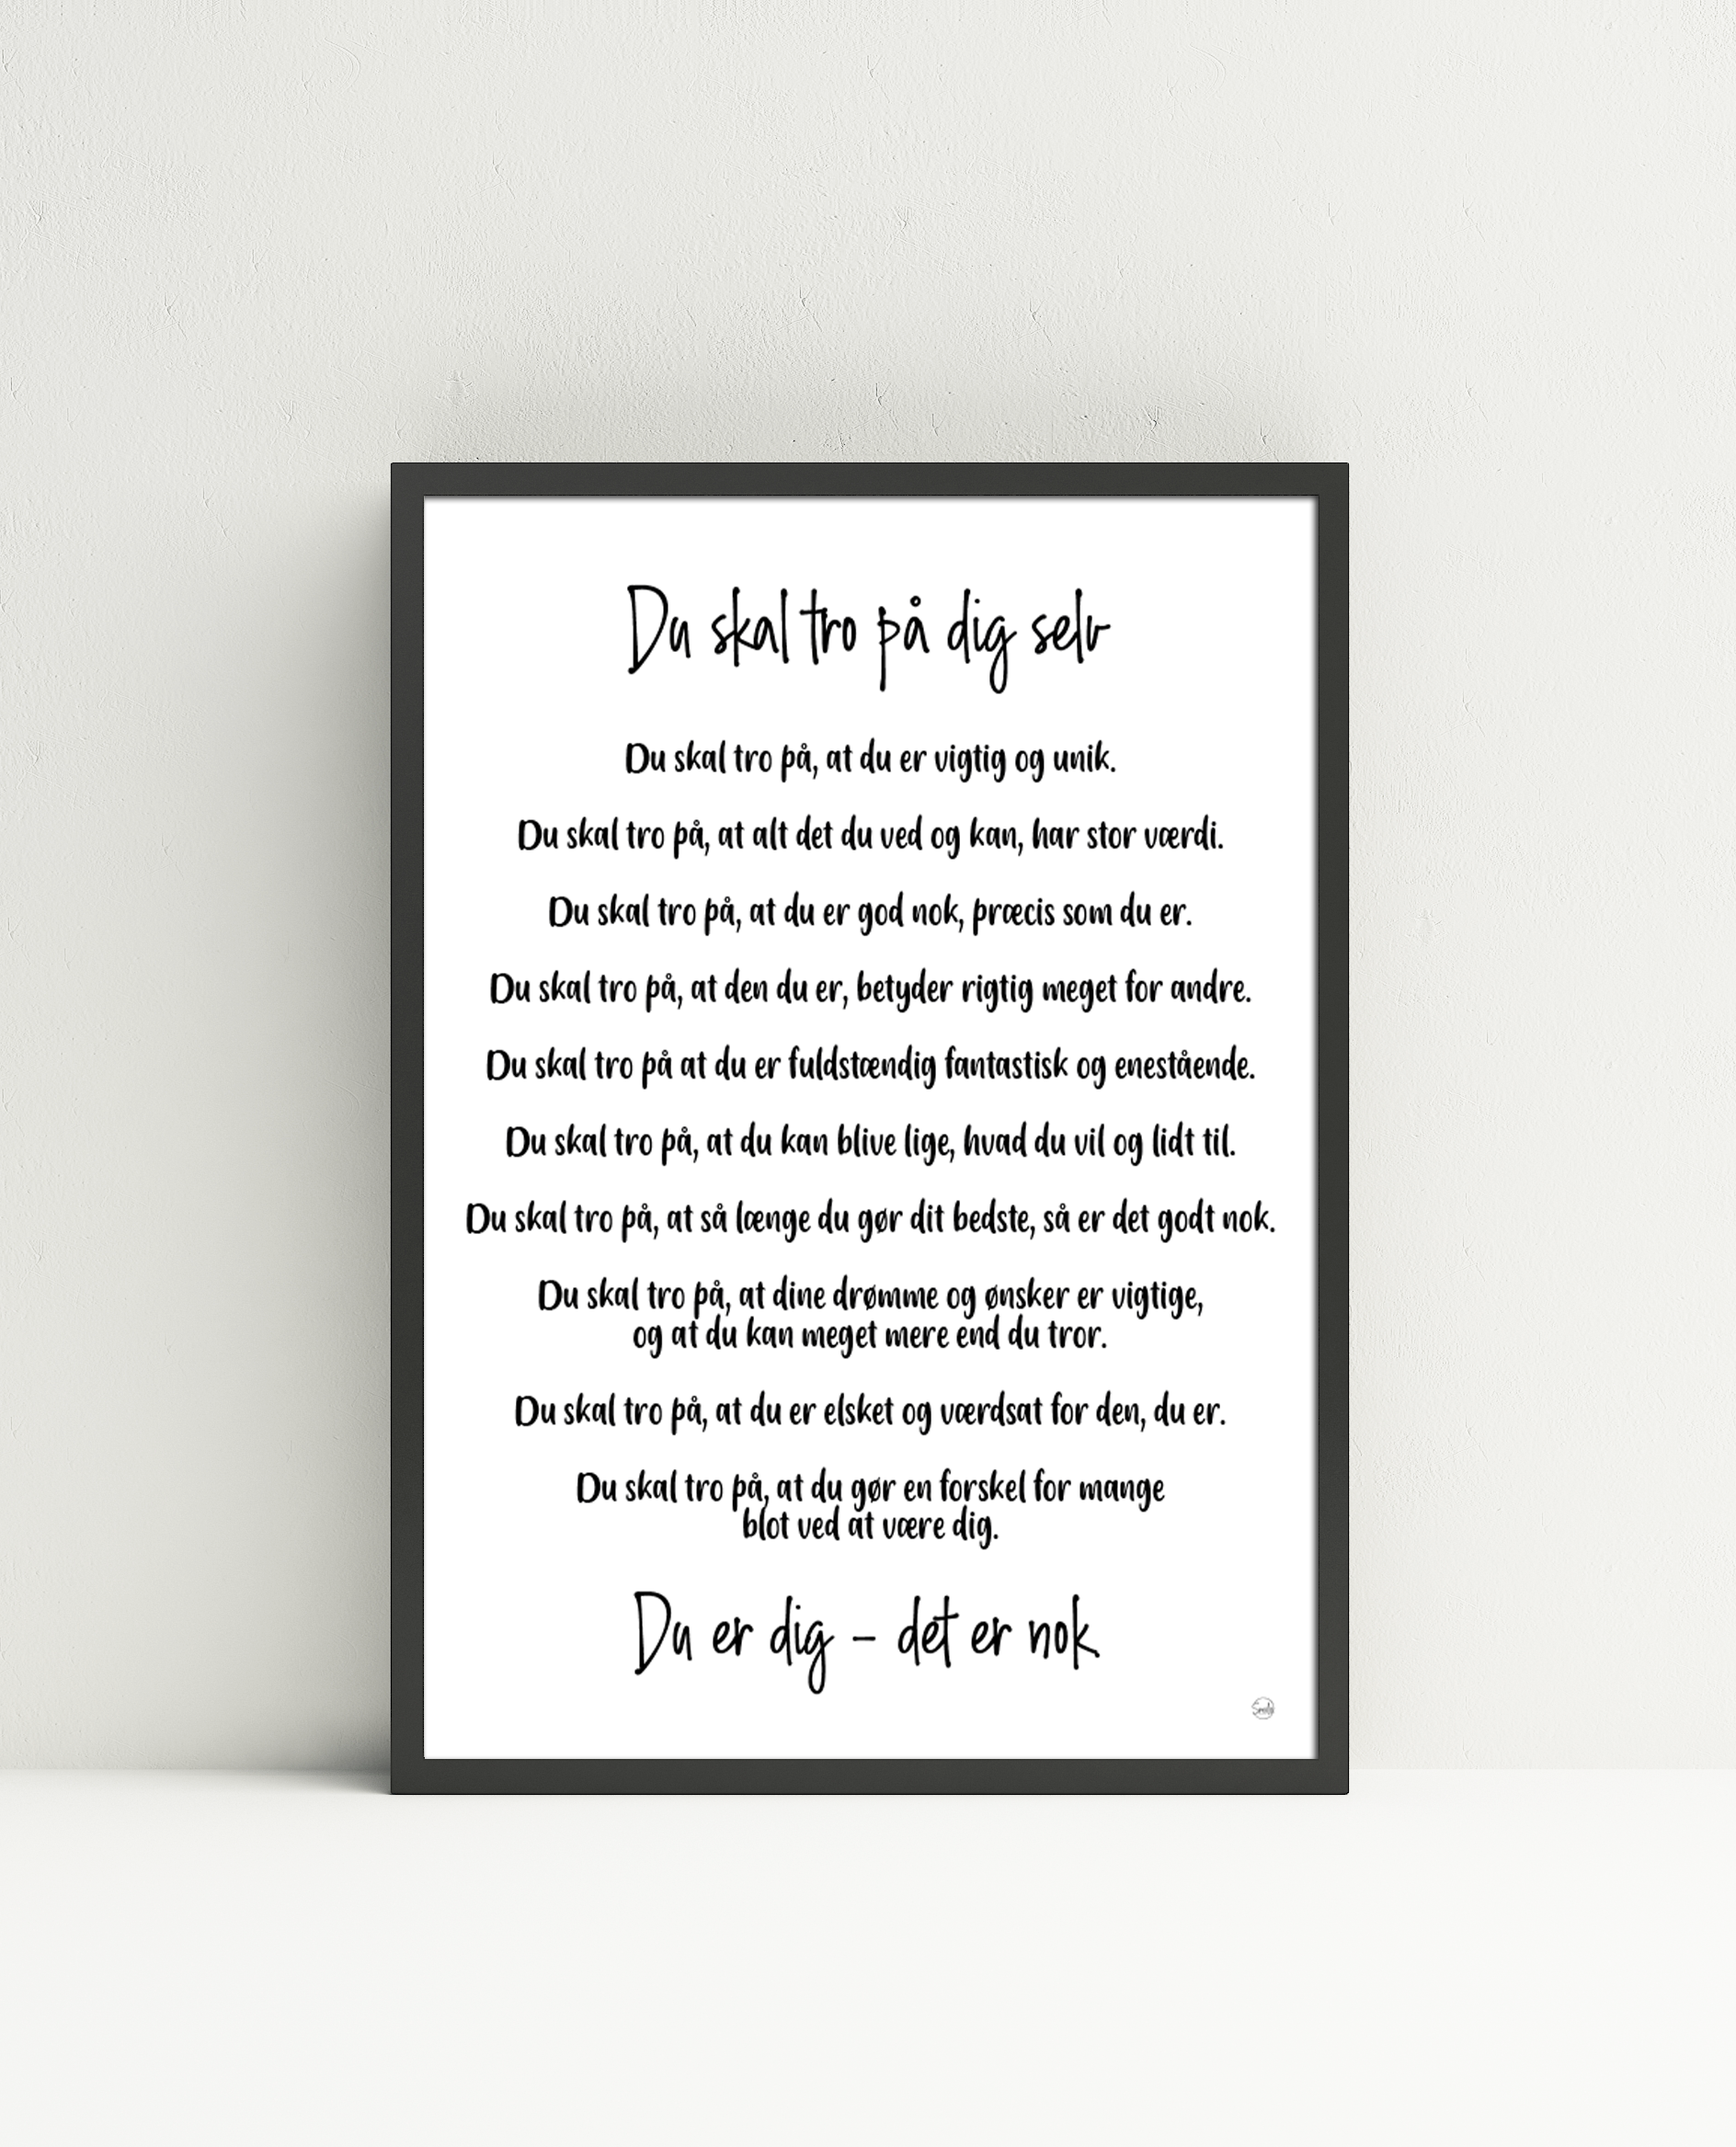 Du skal tro på dig selv
Du skal tro på, at du er vigtig og unik.
Du skal tro på, at alt det du ved og kan, har stor værdi.
Du skal tro på, at du er god nok, præcis som du er.
Du skal tro på, at den du er, betyder rigtig meget for andre.
Du skal tro på at du er fuldstændig fantastisk og enestående.
Du skal tro på, at du kan blive lige, hvad du vil og lidt til.
Du skal tro på, at så længe du gør dit bedste, så er det godt nok.
Du skal tro på, at dine drømme og ønsker er vigtige,
og at du kan meget mere end du tror.
Du skal tro på, at du er elsket og værdsat for den, du er.
Du skal tro på, at du gør en forskel for mange
blot ved at være dig.
Du er dig - det er nok